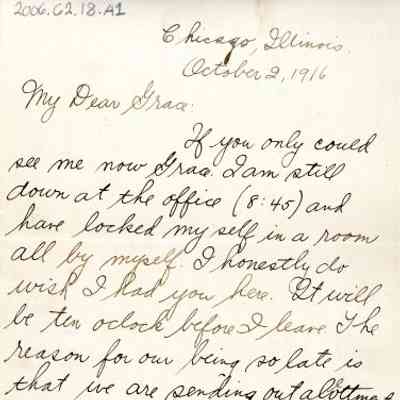 2006.62.18.A1
Chicago, Illinois.
October 2, 1916
My Dear Grace:
If you only could
see me now Grace. I am still
down at the office (8:45) and
have locked my self in a room
all by myself. I honestly do
wish I had you here. It will
be ten oclock before I leave. The
reason for our being so late is
that we are sending out a